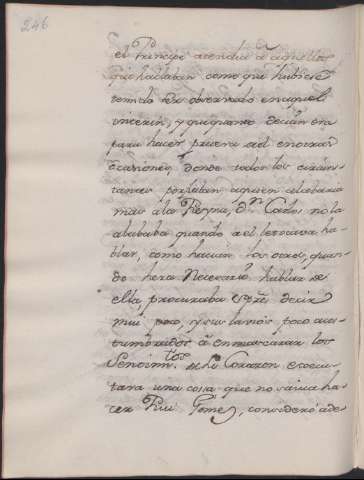 246
el Principe atendia à aquellos
que hablaban como que hubiese
tenido observado en aquel
interin, y que quanto decian era
para hacer prueva en
ocaciones donde todos los circuns
tantes porfiaban aquien alabaria
mas à la Reyna, Dn. Carlos no la
alababa quando a el le tocava ha
blar, como hacian los otros, quan
do hera Necesario hablar de
ella, procuraba decir
mui poco, y sus lavios poco acos
tumbrados à enmascarar los
Sentim.tos de su Corazon execu
tava una cosa que no savia ha
cer Rui Gomez, consideró ade